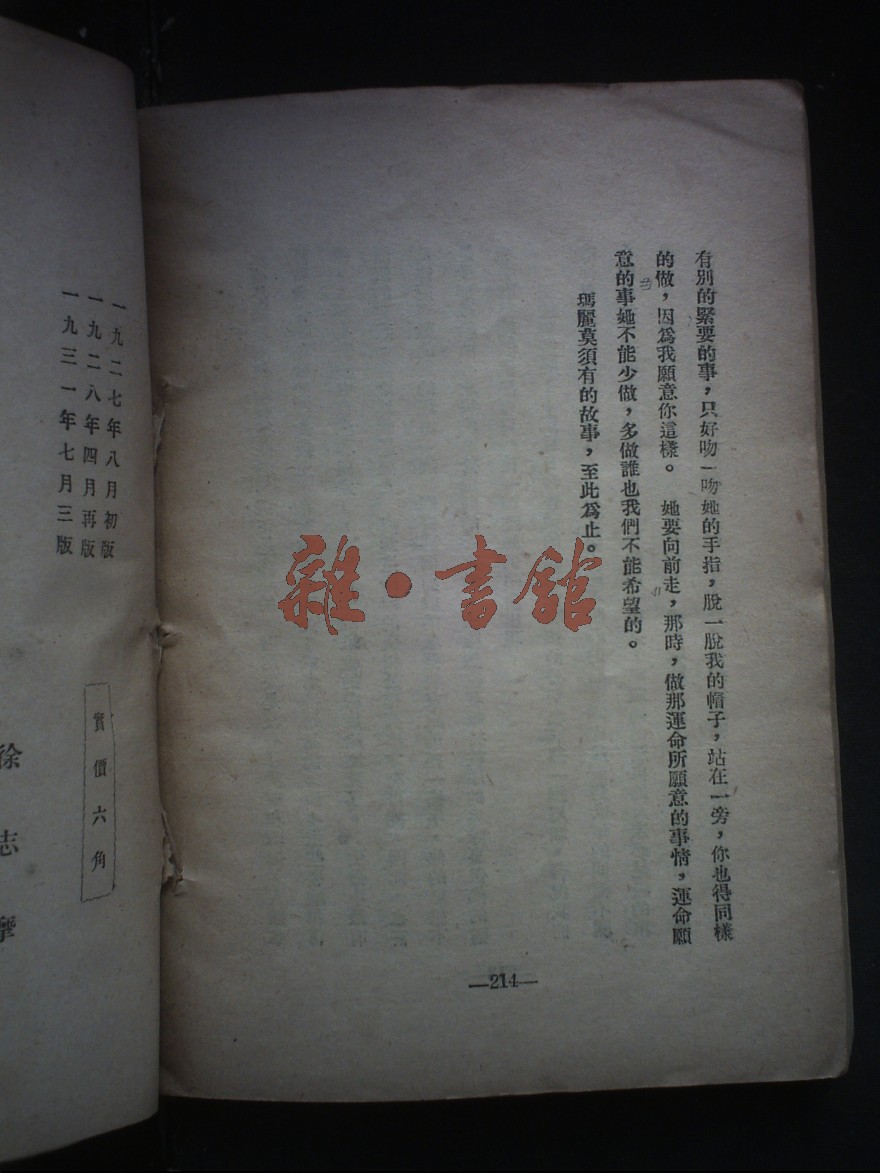 有別的緊要的事，只好吻一吻她的手指，脫一脫我的帽子，站在一旁，你也得同樣
的做，因爲我願意你這樣。　她要向前走，那時，做那運命所願意的事情，運命願
意的事她不能少做，多做誰也我們不能希望的。
瑪麗莫須有的故事，至此爲止。
—214—
一九二七年八月初版
一九二八年四月再版
一九三一年七月三版
實價六角
徐志摩
雜·書館